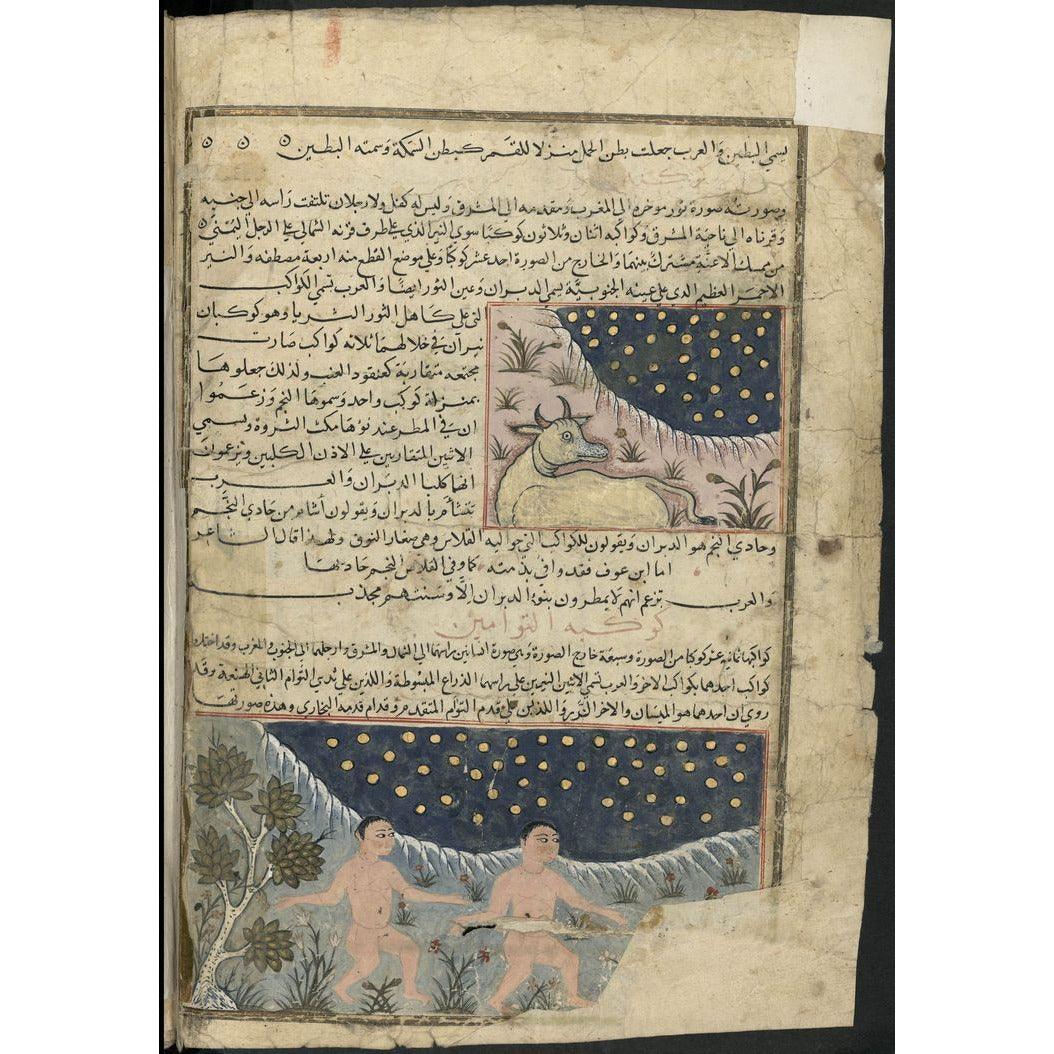 يسمى البطين والعرب جعلت بطن الحمل منزلا للقمر كبطن السمكة وسمته البطين ه ه ه
وصورته صورة ثور موخره الى المغرب ومقدمه الى المشرق وليس له كفل ولا رجلان تلتفت راسه الى جنبه
وقرناه الى ناحية المشرق وكواكبه اثنان وثلاثون كوكبا سوى النير الذي على طرف قرنه الشمالي على الرجل اليمنى
من ممسك الاعنة مشترك بينهما والخارج من الصورة احد عشر كوكبا وعلى موضع القطع منه اربعة مصطفه والنير
الاحمر العظيم الذي على عينه الجنوبية يسمى الدبران وعين الثور ايضا والعرب تسمى الكواكب
التى على كاهل الثور الثريا وهو كوكبان
نيران في خلالهما ثلاثه كواكب صارت
مجتمعه متقاربة كعنقود العنب ولذلك جعلوها
بمنزلة كوكب واحد وسموها النجم وزعموا
ان في المطر عند نوها الثروة ويسمى
الاثنين المتقاربين على الاذن الكلبين ويزعمون
انهما كلبا الدبران والعرب
تتشأم بالدبران ويقولون أشام من حادى النجم
وحادى النجم هو الدبران ويقولون للكواكب التى حواليه القلاص وهى صغار النوق ولهذا قال الشاعر
اما ابن عوف فقد وافى بذمته كما وفى القلاص النجم حاديها
والعرب تزعم انهم لا يمطرون بنوء الدبران الا وسنتهم مجدب
كوكبه التوامين
كواكبها ثمانيه عشر كوكبا من الصورة وسبعة خارج الصورة وهى صورة انسانين راسهما الى الشمال والمشرق وارجلهما الى الجنوب والمغرب وقد اختلط
كواكب احدهما بكواكب الاخر والعرب تسمى الاثنين النيرين على راسهما الذراع المبسوطة واللذين على ثدى التوام الثانى الهنعة وقد
روى ان احدهما هو الميسان والاخر الزر واللذين على قدم التوأم المتقدم وقدام قدمه البخاتى وهذه صورتها